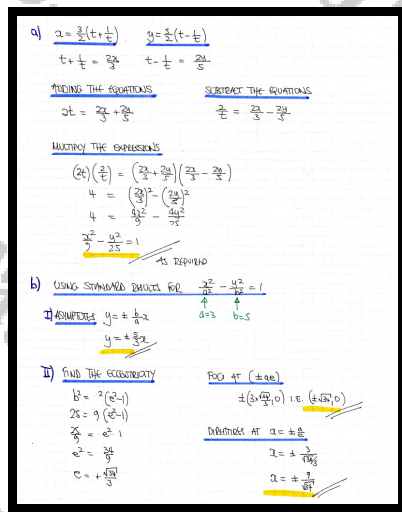 a) x = 3/2(t + 1/t) y = 5/2(t - 1/t)
t + 1/t = 2x/3 t - 1/t = 2y/5
ADDING THE EQUATIONS SUBTRACT THE EQUATIONS
2t = 2x/3 + 2y/5 2/t = 2x/3 - 2y/5
MULTIPLY THE EXPRESSIONS
(2t)(2/t) = (2x/3 + 2y/5)(2x/3 - 2y/5)
4 = (2x/3)² - (2y/5)²
4 = 4x²/9 - 4y²/25
x²/9 - y²/25 = 1
AS REQUIRED
b) USING STANDARD RESULTS FOR x²/a² - y²/b² = 1
a=3 b=5
I) ASYMPTOTES y = ± b/a x
y = ± 5/3 x
II) FIND THE ECCENTRICITY
b² = ²(e²-1)
25 = 9(e²-1)
25/9 = e² 1
e² = 34/9
e = + √34/3
FOCI AT (±ae)
±(3×√34/3, 0) I.E. (±√34, 0)
DIRECTRICES AT x = ± a/e
x = ± 3/√34/3
x = ± 9/√34